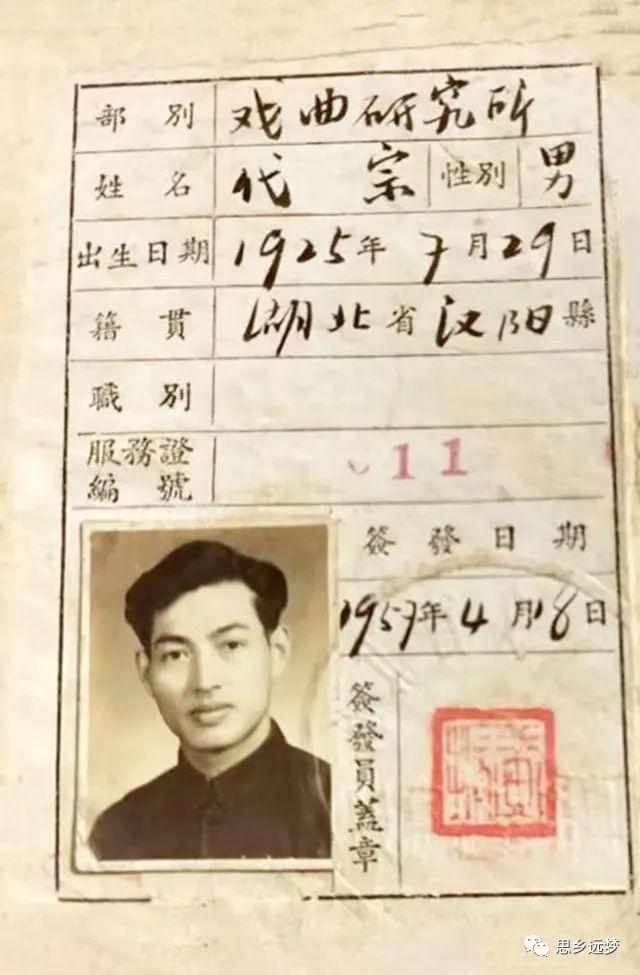 部別 戏曲研究所
姓名 代宗 性别 男
出生日期 1925年7月29日
籍貫 湖北省汉阳縣
職別
服務證編號 011
簽發日期
1957年4月18日
簽發員蓋章
思乡远梦